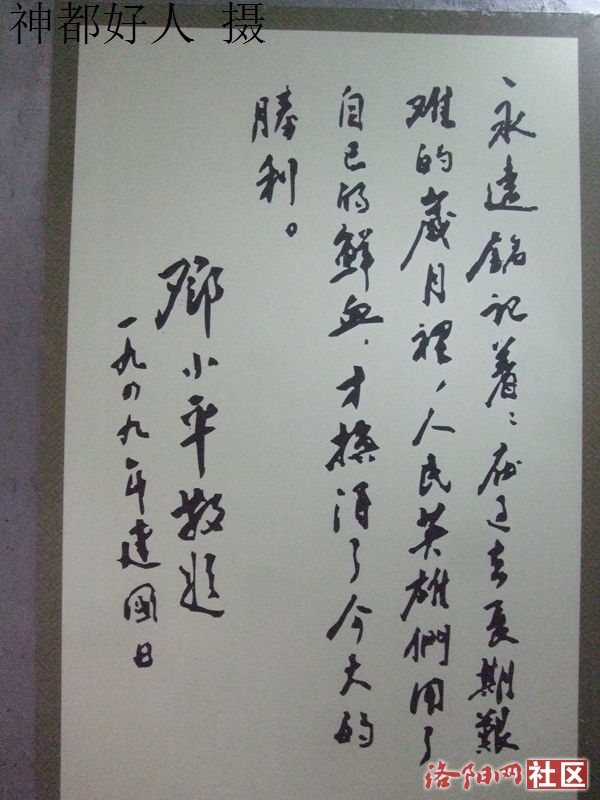 神都好人 摄
永远铭记着：在过去長期艱
难的歲月裡，人民英雄們用了
自己的鲜血，才换得了今天的
勝利。
鄧小平敬题
一九四九年建國日
洛阳网社区